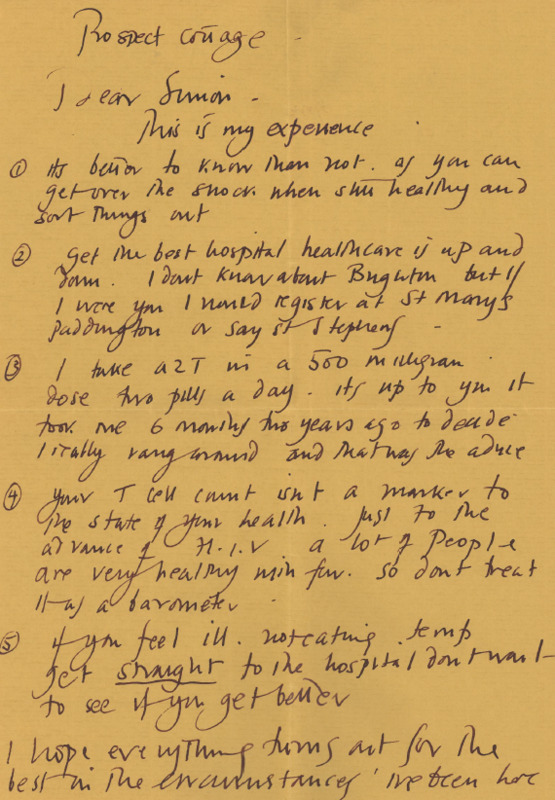 Prospect cottage -
dear Simon -
This is my experience
① its better to know than not. as you can
get over the shock when still healthy and
sort things out
② get the best hospital healthcare is up and
down. I dont know about Brighton but if
I were you I would register at St Marys
paddington or say st Stephens -
③ I take AZT in a 500 milligram
dose two pills a day. its up to you it
took me 6 months two years ago to decide
I really rang around and that was the advice
④ your T cell count isnt a marker to
the state of your health. Just to the
advance of H.I.V a lot of People
are very healthy with few. So dont treat
it as a barometer
⑤ if you feel ill. not eating. temp
get straight to the hospital dont wait
to see if you get better
I hope everything turns out for the
best in the circumstances ive been here